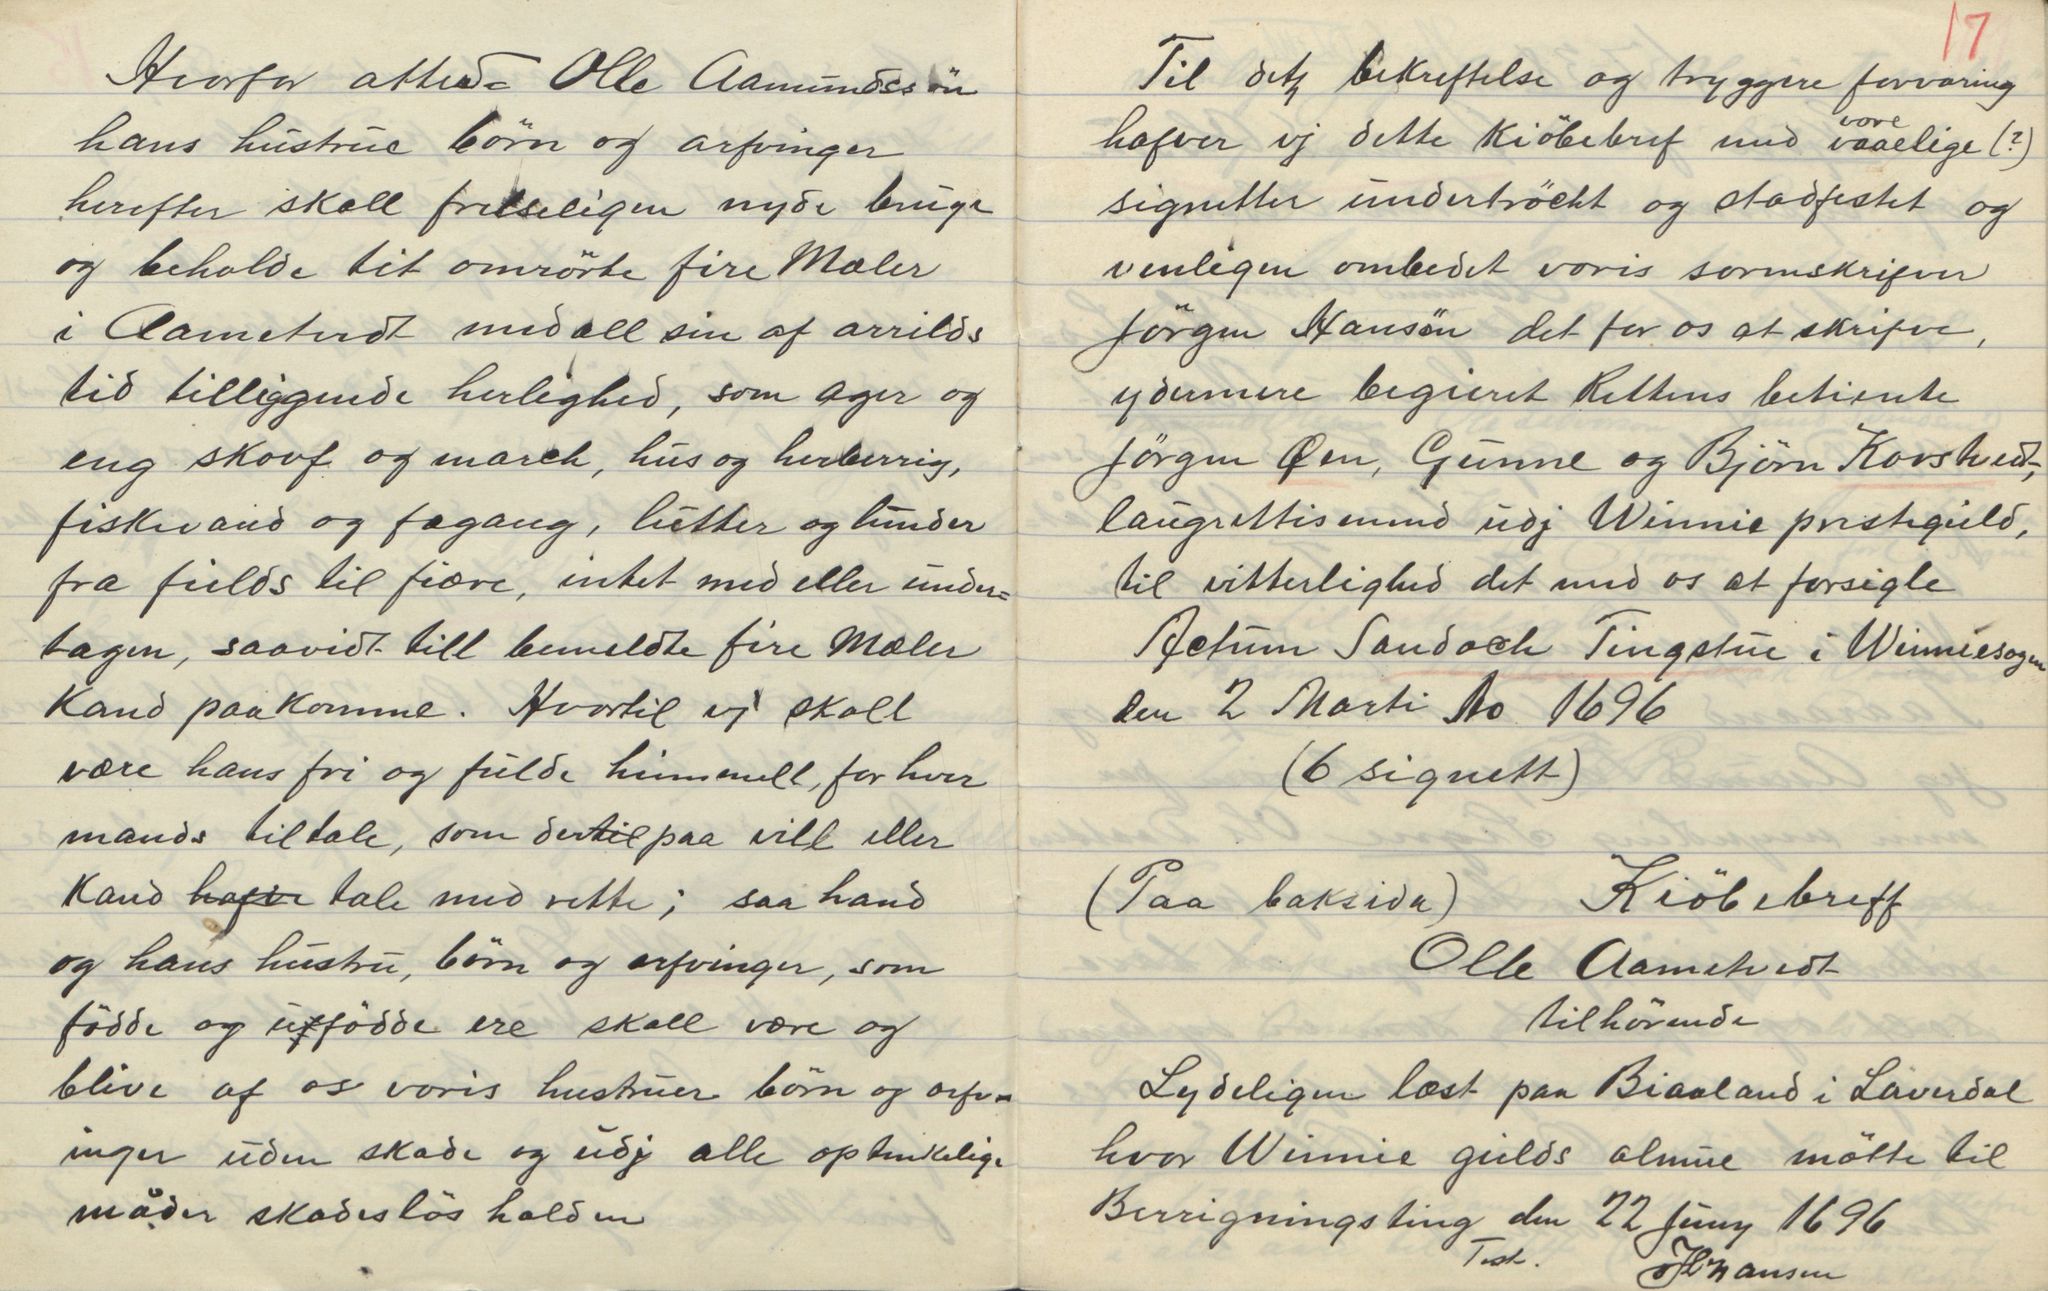 Hvorfor attbe= Olle Aamundssön
hans hustrue börn og arfvinger
herefter skall frelseligen nyde bruge
og beholde tit omrörte fire Mæler
i Aametvedt med all sin af arrilds
tid tilliggende herlighed, som ager og
eng skovf og march, hus og herberrig,
fiskevand og fægang, lutter og lunder
fra fields til fiære, intet med eller under=
tagen, saavidt till bemeldte fire Mæler
kand paakomme. Hvortil vj skall
være hans fri og fulde himmell, for hver
mands tiltale, som dertil paa vill eller
kand hafve tale med rette; saa hand
og hans hustru, börn og arfvinger, som
födde og uffödde ere skall være og
blive af os voris hustruer börn og arfv=
inger uden skade og udj alle optenkelige
måder skadeslös holden
17
Til detz bekreftelse og tryggere forvaring
hafver vj dette Kiöbebref med vaaelige (?)
vore
signetter undertröckt og stadfestet og
venligen ombedet voris sorrnskrifver
Jörgen Hansön det for os at skrifve,
ydermere begieret Rettens betiente
Jörgen Øen, Gunne og Björn Kovstvedt,
laugrettismend udj Winnie prestegield,
til vitterlighed det med os at forsigle
Actum Sandoch Tingstue i Winniesogen
den 2 Marti Ao 1696
(6 signett)
(Paa baksida) Kiöbebreff
Olle Aametvedt
tilhörende
Lydeligen læst paa Biaaland i Laverdal
hvor Winnie gields almue mötte til
Berrigningsting den 22 Juny 1696
Test. JHansen